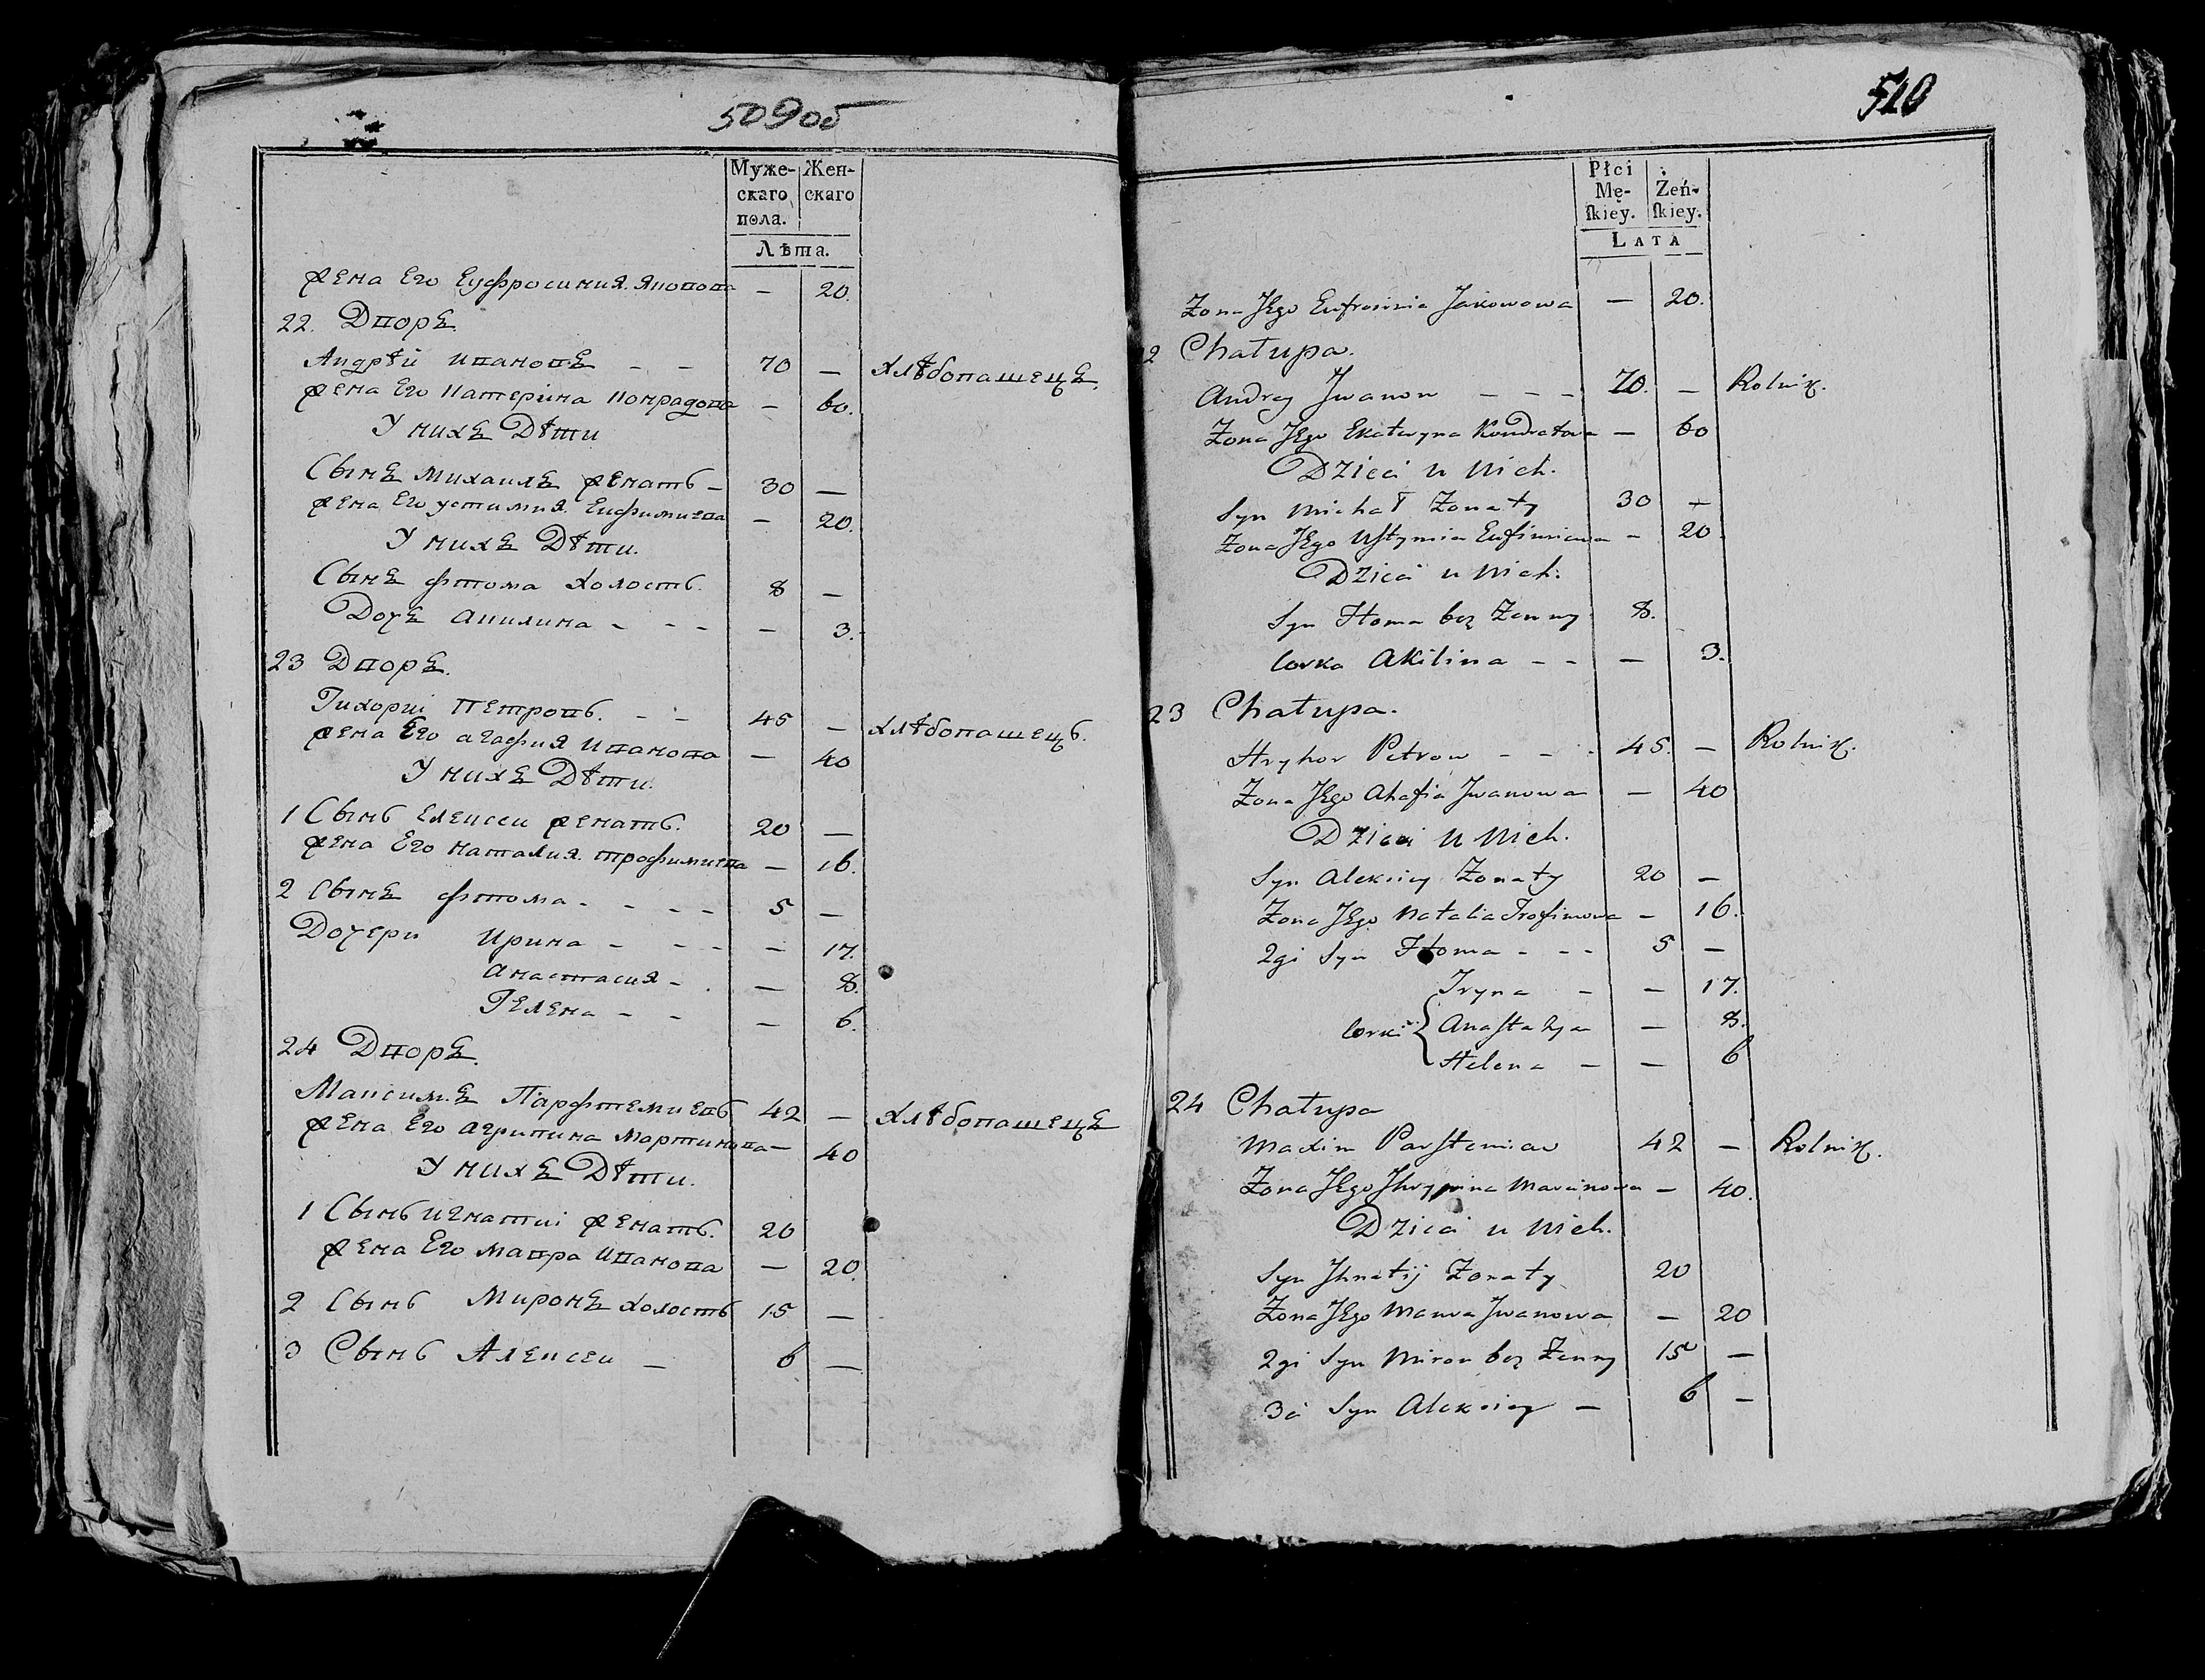 509об
Муже- Жен-
скаго скаго
пола.
Лѣта.
жена Его Еуфросиния Яковова — 20.
22. Дворъ
Андрѣй Ивановъ - - 70 — хлѣбопашецъ.
жена Его Катерина Кондратова — 60.
У нихъ Дѣти
Сынъ Михаилъ женатъ - 30 —
жена Его Устимия Еуфимиева — 20.
У нихъ Дѣти.
Сынъ Фтома холостъ. 8 —
Дочь Акилина - - - — 3.
23 Дворъ.
Гихорій Петровъ. - - 45 — хлѣбопашецъ.
жена Его Агафия Иванова — 40
У нихъ Дѣти.
1 Сынъ Елексеи женатъ. 20 —
жена Его Наталия Трофимиева — 16.
2 Сынъ Фтома - - - - 5 —
Дочери Ирина - - - — 17.
Анастасия - . — 8.
Гелена - - — 6.
24 Дворъ.
Максимъ Парфтемиевъ 42 — хлѣбопашецъ
жена Его Агрипина Мартинова — 40
У нихъ Дѣти.
1 Сынъ Игнатиі женатъ. 20
жена Его Мавра Иванова — 20.
2 Сынъ Миронъ холостъ 15 —
3 Сынъ Алексеи — 6 —
510
Płci Żeń-
Mę- ſkiey.
ſkiey.
LATA
Żona JEgo Eufrosinia Jakowowa — 20.
2 Chałupa.
Andrey Jwanow - - - 70. — Rolnik.
Żona JEgo Ekateryna Kondratowa — 60
Dzieci u Nich.
Syn Michał Żonaty 30 —
Żona JEgo Ustymia Eufimiewa - 20.
Dzieci u Nich.
Syn Homa bez Żenny 8.
Corka Akilina - - — 3.
23 Chałupa.
Hryhor Petrow - - - 45. — Rolnik.
Żona JEgo Ahafia Jwanowa — 40
Dzieci u Nich.
Syn Aleksiey Żonaty 20 —
Żona JEgo Natalia Trofimowa — 16.
2gi Syn Homa - - - 5 —
Jryna - — 17.
Corki Anastazya — 8.
Helena - — 6
24 Chałupa
Maxim Parftemiew 42 — Rolnik.
Żona JEgo Jhrypina Marcinowa — 40.
Dzieci u Nich.
Syn Jhnatij Żonaty 20
Żona JEgo Mawra Jwanowa — 20
2gi Syn Miron bez Żenny 15 —
3i Syn Aleksiey — 6 —